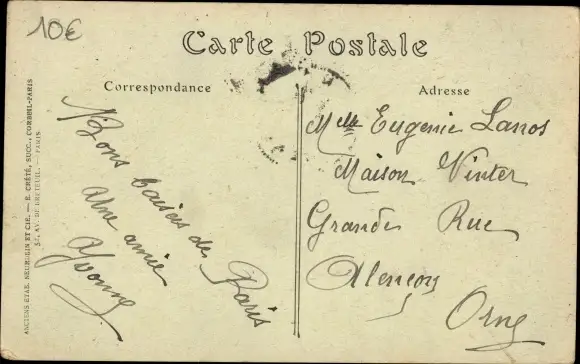 10€
Carte Postale
Correspondance
Adresse
Bons baisers de Paris
Une amie
Yvonne
Mlle Eugenie Lanos
Maison Vinter
Grande Rue
Alençon
Orne
ANCIENS ETAB. NEURDEIN ET CIE. — E. CRÉTÉ, SUCC., CORBEIL-PARIS
52, AV. DE BRETEUIL. — PARIS.